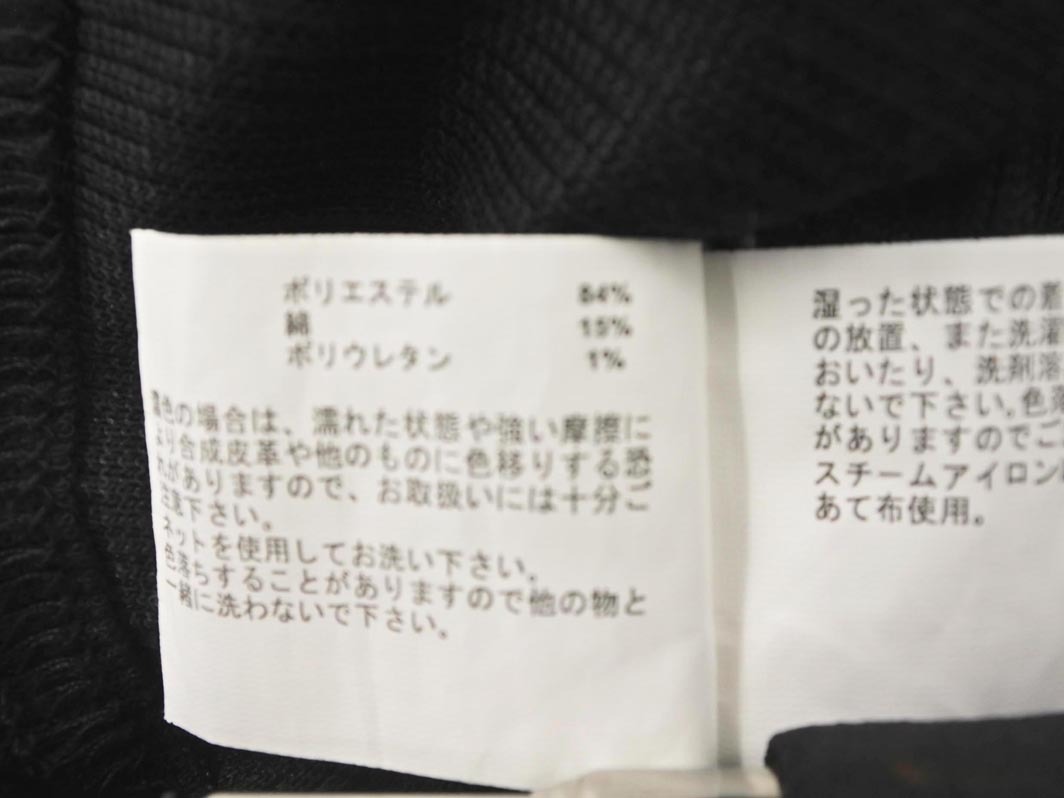 ポリエステル 84%
綿 15%
ポリウレタン 1%
色の場合は、濡れた状態や強い摩擦に
より合成皮革や他のものに色移りする恐
れがありますので、お取扱いには十分ご
注意下さい。
ネットを使用してお洗い下さい。
色落ちすることがありますので他の物と
一緒に洗わないで下さい。
湿った状態での
の放置、また洗濯
おいたり、洗剤溶
ないで下さい。色
がありますのでご
スチームアイロン
あて布使用。